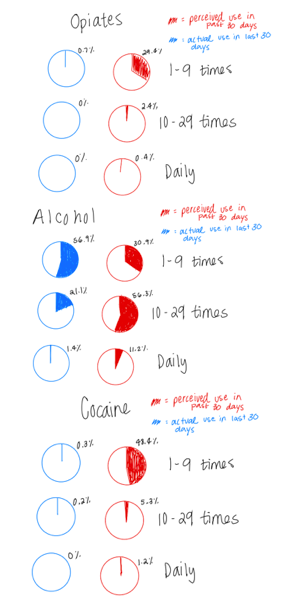 Opiates
= perceived use in
past 30 days
= actual use in last 30
days
0.7%
29.4%
1-9 times
0%
2.4%
10-29 times
0%
0.4%
Daily
Alcohol
= perceived use in
past 30 days
= actual use in last 30
days
56.9%
30.9%
1-9 times
21.1%
56.3%
10-29 times
1.4%
11.2%
Daily
Cocaine
= perceived use in
past 30 days
= actual use in last 30
days
0.3%
48.6%
1-9 times
0.2%
5.3%
10-29 times
0%
1.2%
Daily